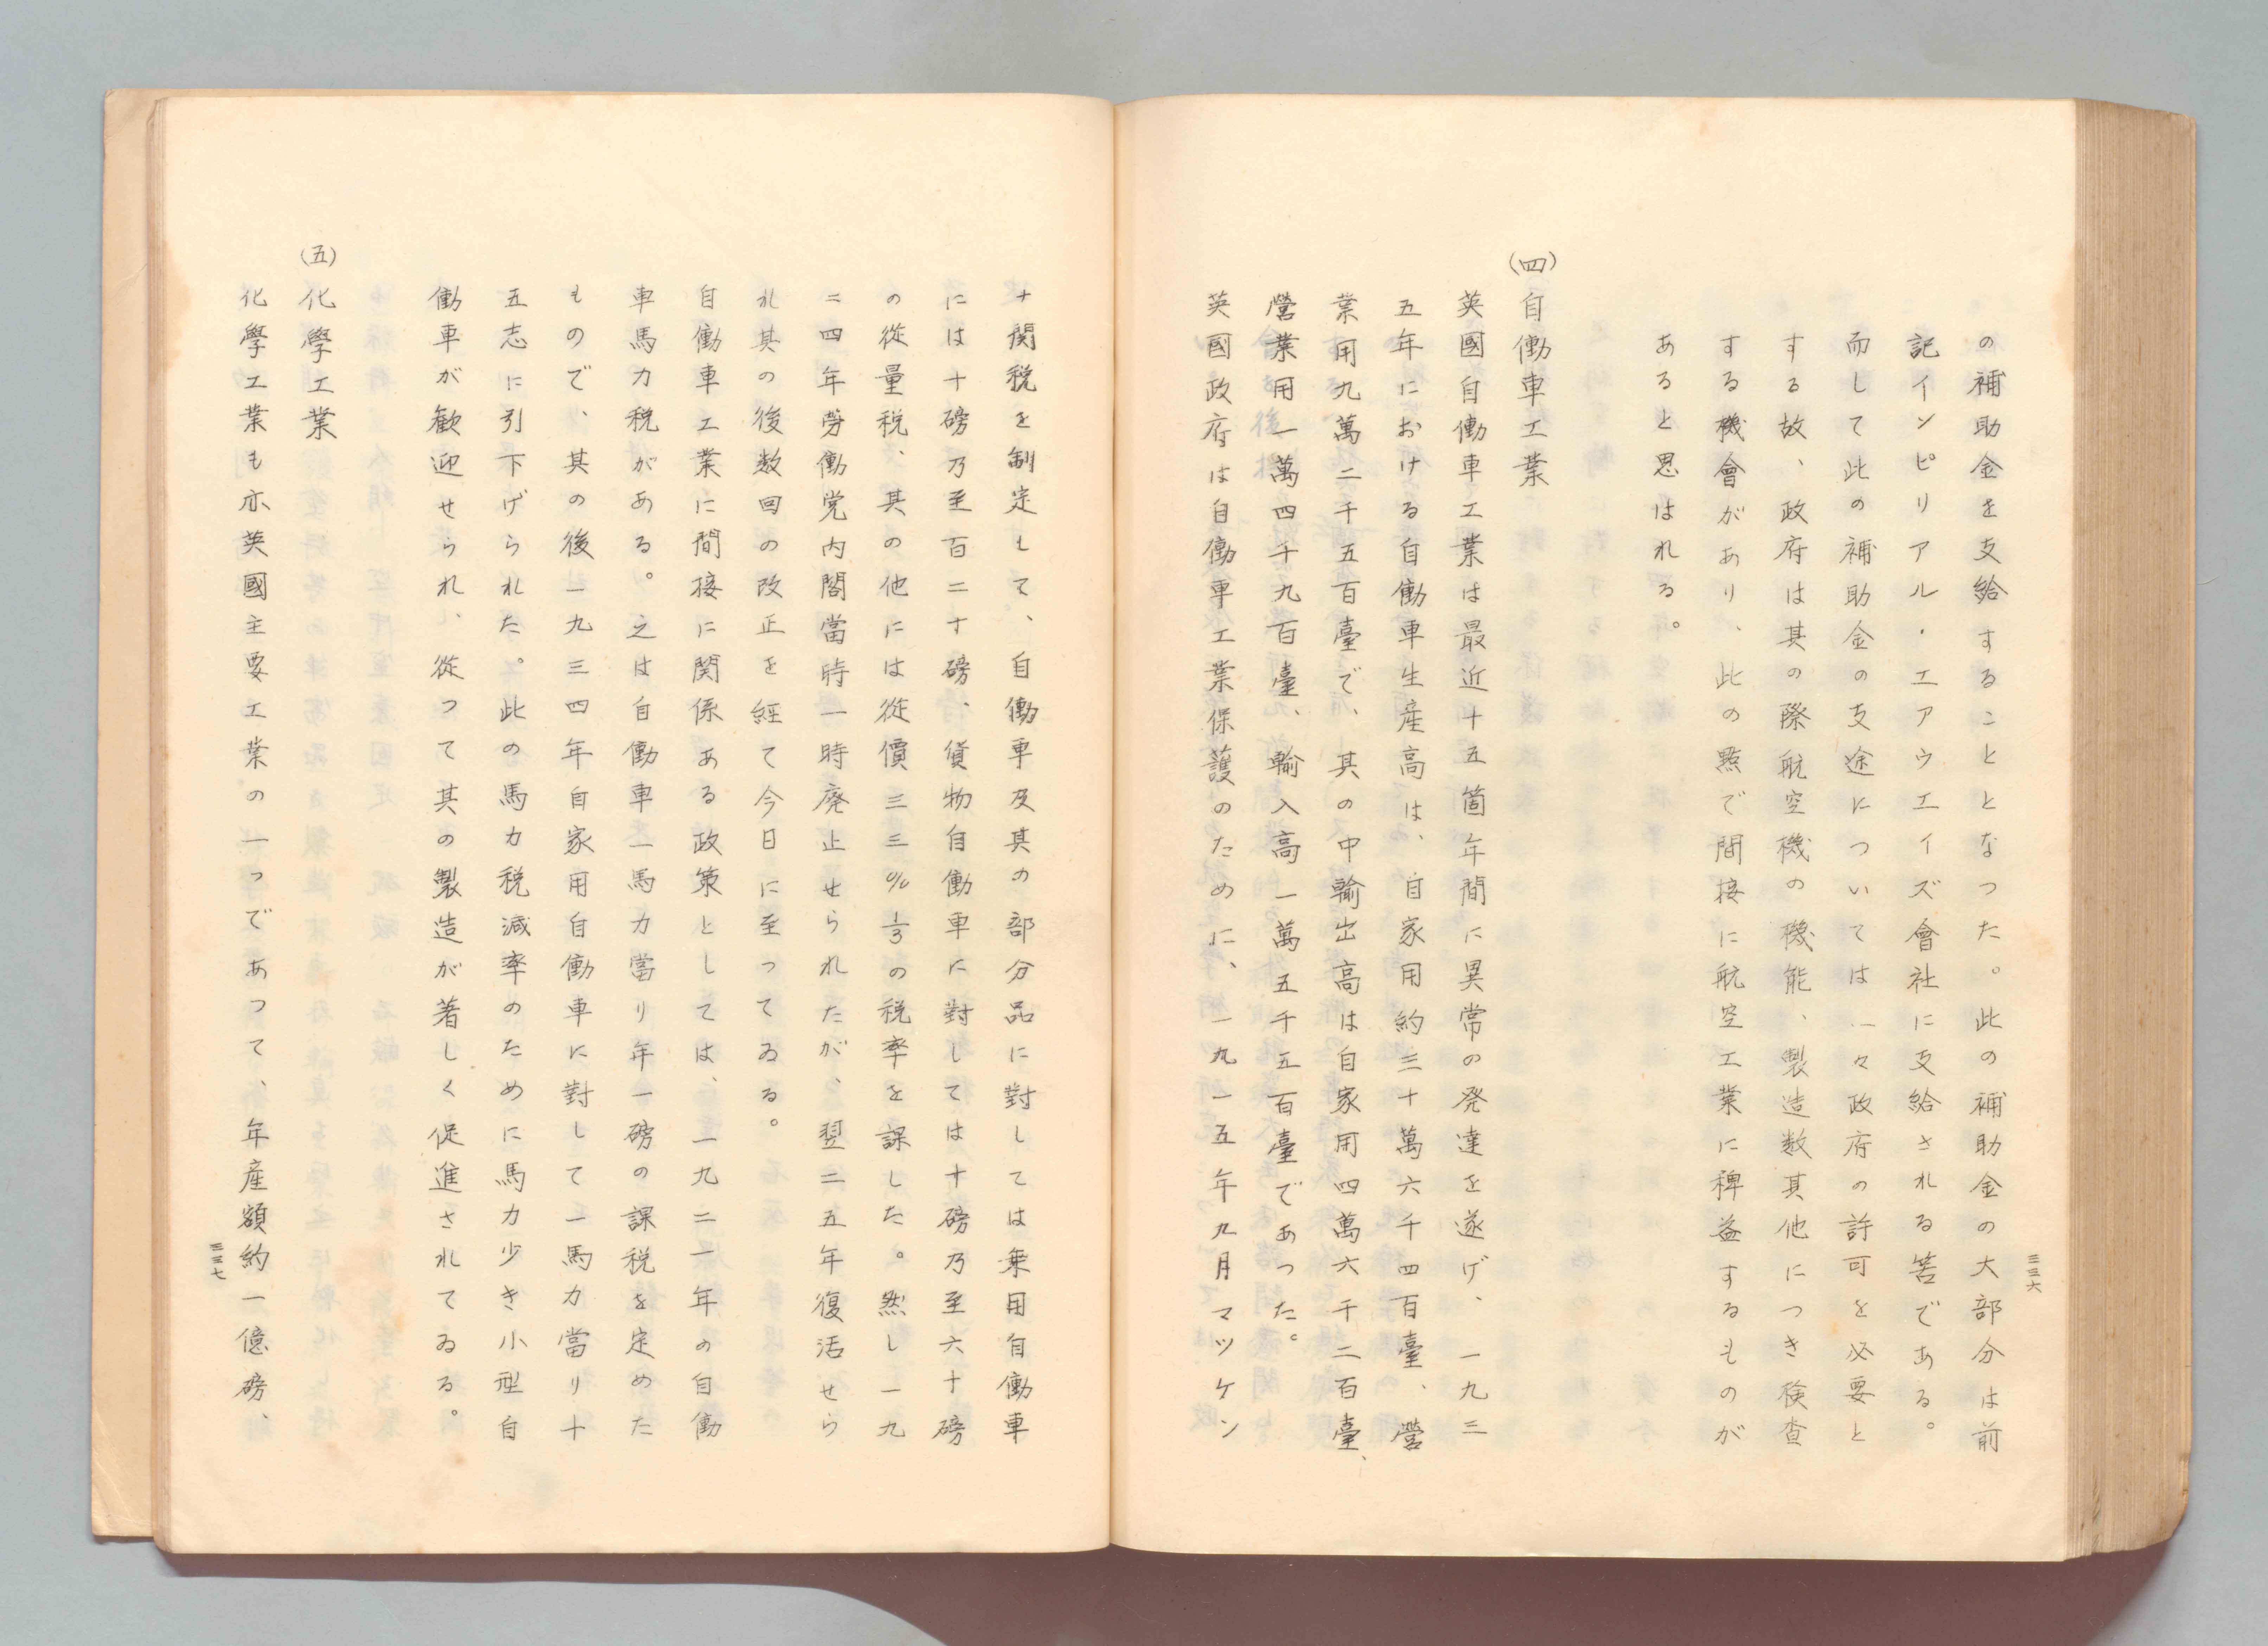 三三六
の補助金を支給することとなつた。此の補助金の大部分は前
記インピリアル・エアウエイズ會社に支給される筈である。
而して此の補助金の支途については一々政府の許可を必要と
する故、政府は其の際航空機の機能、製造数其他につき検査
する機會があり、此の點で間接に航空工業に稗益するものが
あると思はれる。
(四)自働車工業
英國自働車工業は最近十五箇年間に異常の発達を遂げ、一九三
五年における自働車生産高は、自家用約三十萬六千四百臺、營
業用九萬二千五百臺で、其の中輸出高は自家用四萬六千二百臺、
營業用一萬四千九百臺、輸入高一萬五千五百臺であつた。
英國政府は自働車工業保護のために、一九一五年九月マツケン
ナ関税を制定して、自働車及其の部分品に對しては乗用自働車
には十磅乃至百二十磅、貨物自働車に對しては十磅乃至六十磅
の從量税、其の他には從價三三%1/3の税率を課した。然し一九
二四年勞働党内閣當時一時廃止せられたが、翌二五年復活せら
れ其の後数回の改正を経て今日に至つてゐる。
自働車工業に間接に関係ある政策としては、一九二一年の自働
車馬力税がある。之は自働車一馬力當り年一磅の課税を定めた
もので、其の後一九三四年自家用自働車に對して一馬力當り十
五志に引下げられた。此の馬力税減率のために馬力少き小型自
働車が歓迎せられ、從つて其の製造が著しく促進されてゐる。
(五)化學工業
化學工業も亦英國主要工業の一つであつて、年産額約一億磅、
三三七